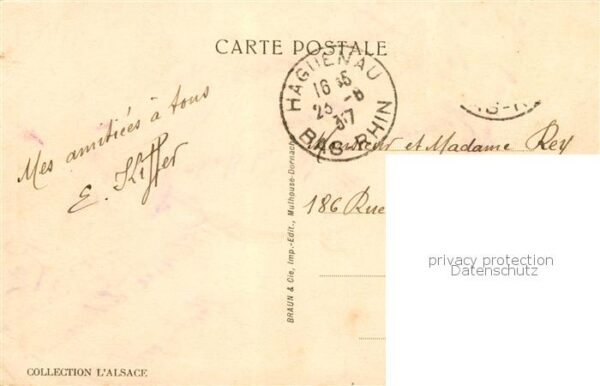 CARTE POSTALE
HAGUENAU
16 35
23 -6
37
BAS-RHIN
Mes amitiées à tous
E. Kiffer
Monsieur et Madame Rey
186 Rue
BRAUN & Cie, Imp.-Edit., Mulhouse-Dornach
privacy protection
Datenschutz
COLLECTION L'ALSACE